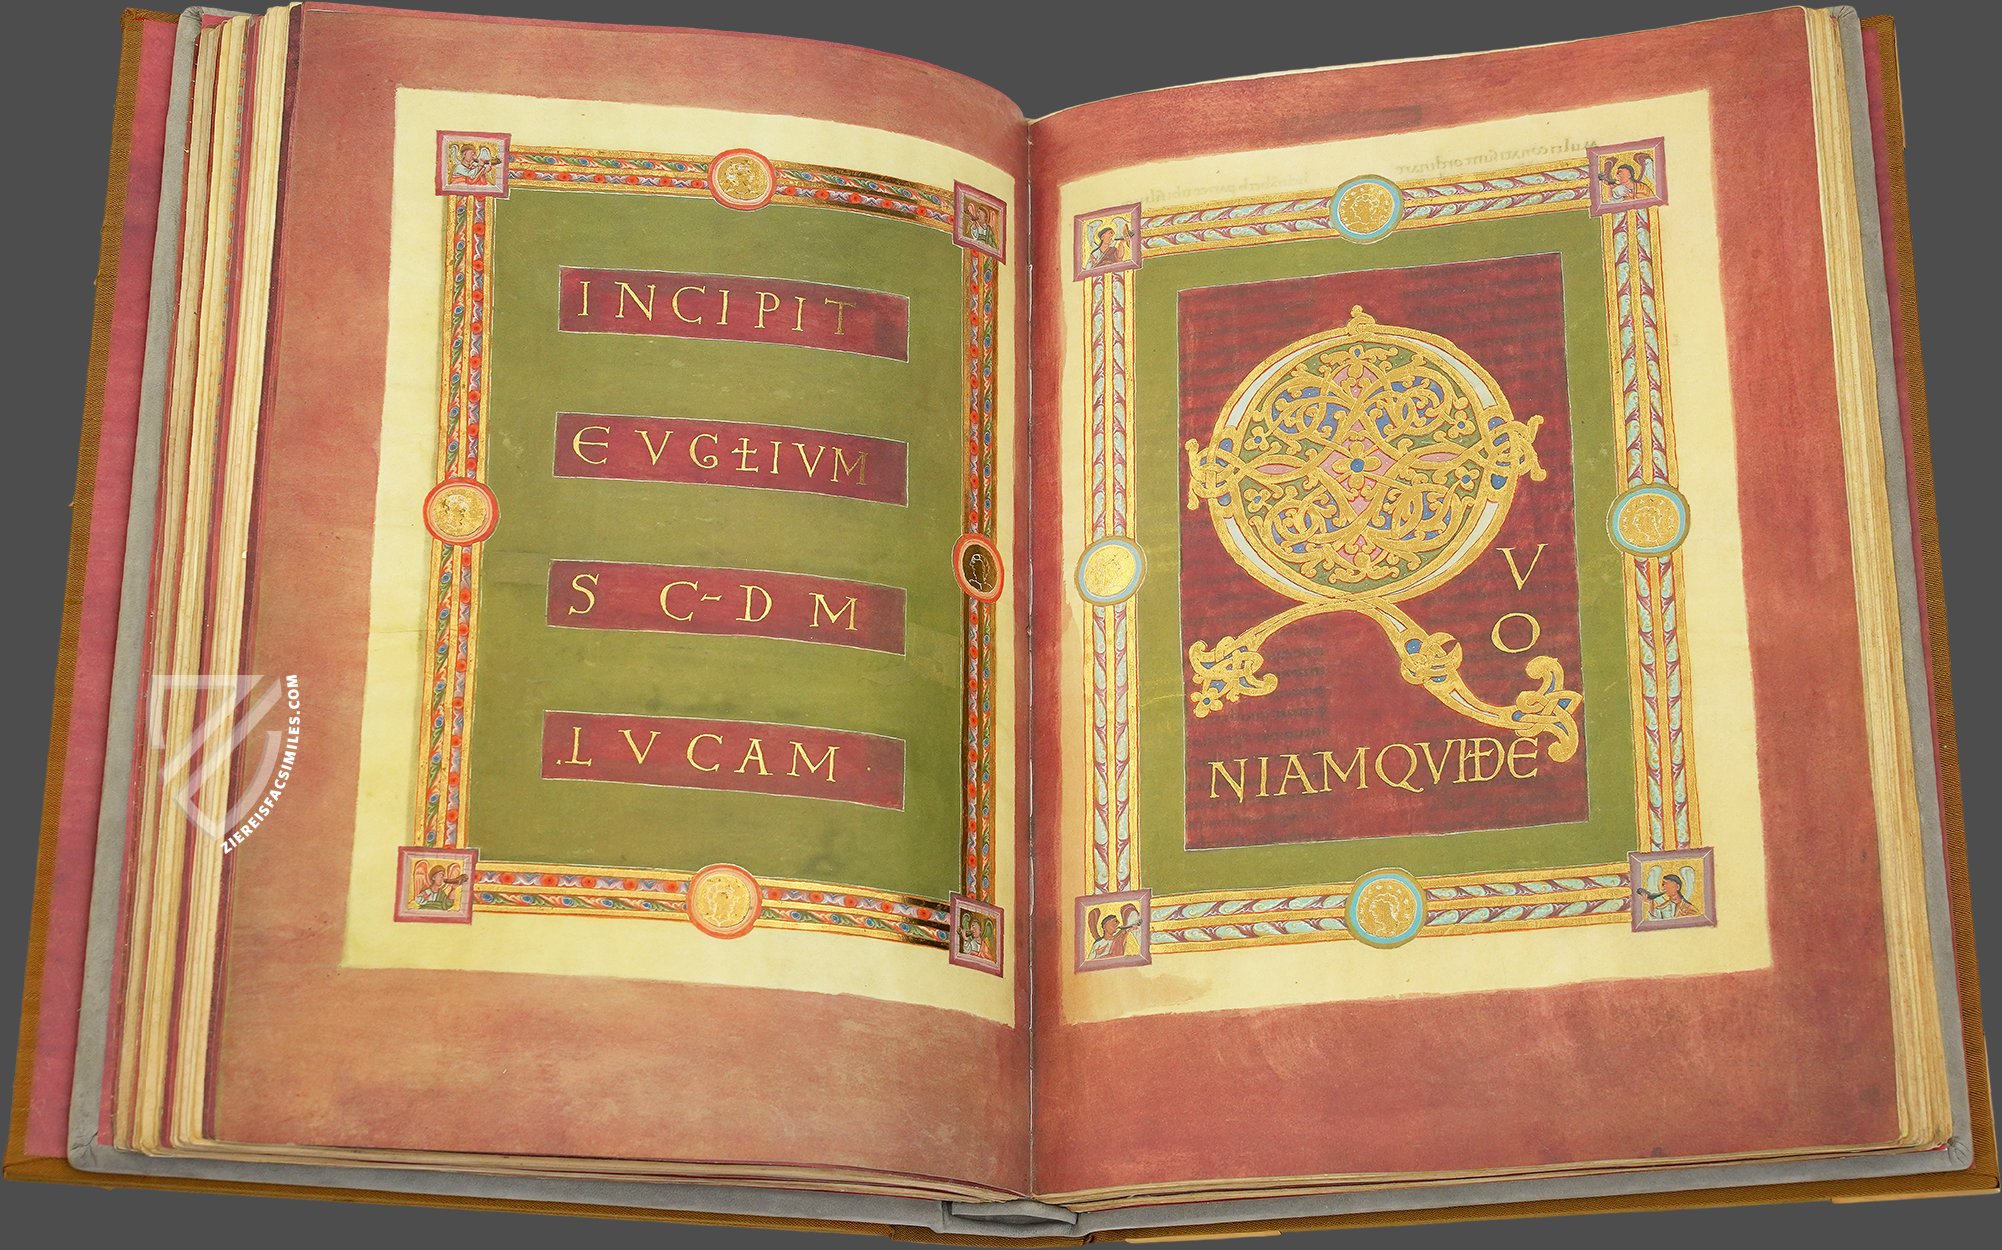 INCIPIT
EVGŁIVM
S C-D M
.LVCAM.
Q
V
O
NIAMQVIDE
ZIEREISFACSIMILES.COM